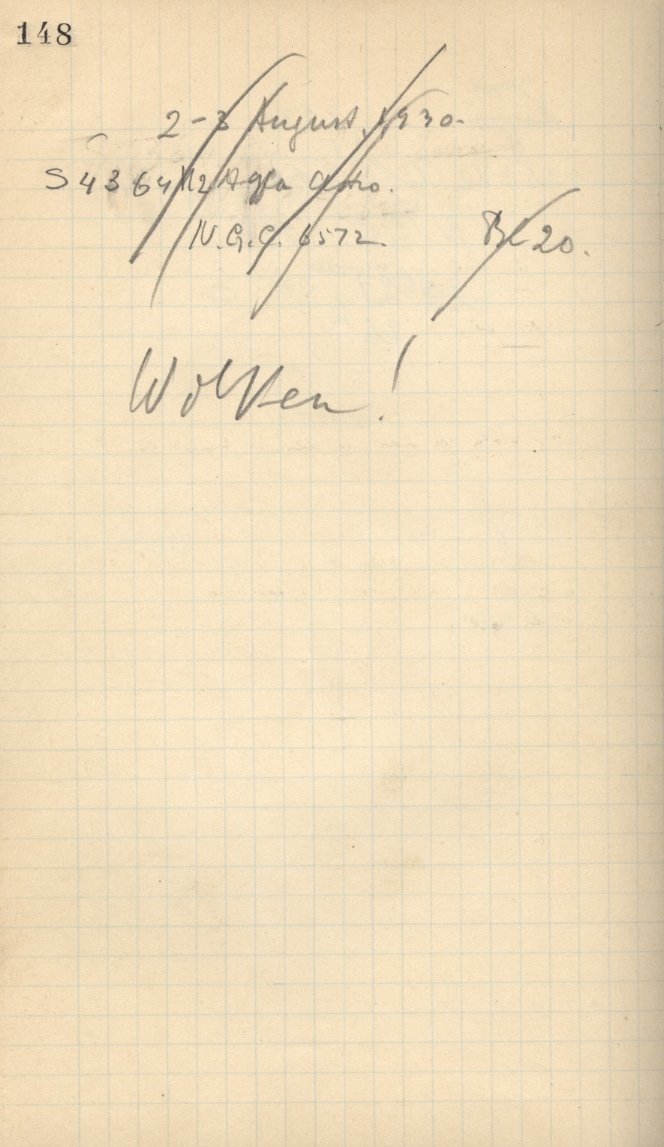 148
2-3 August 1930.
S 4364 1/2 Agfa Astro.
N.G.C. 6572. Bl 20.
Wolken!